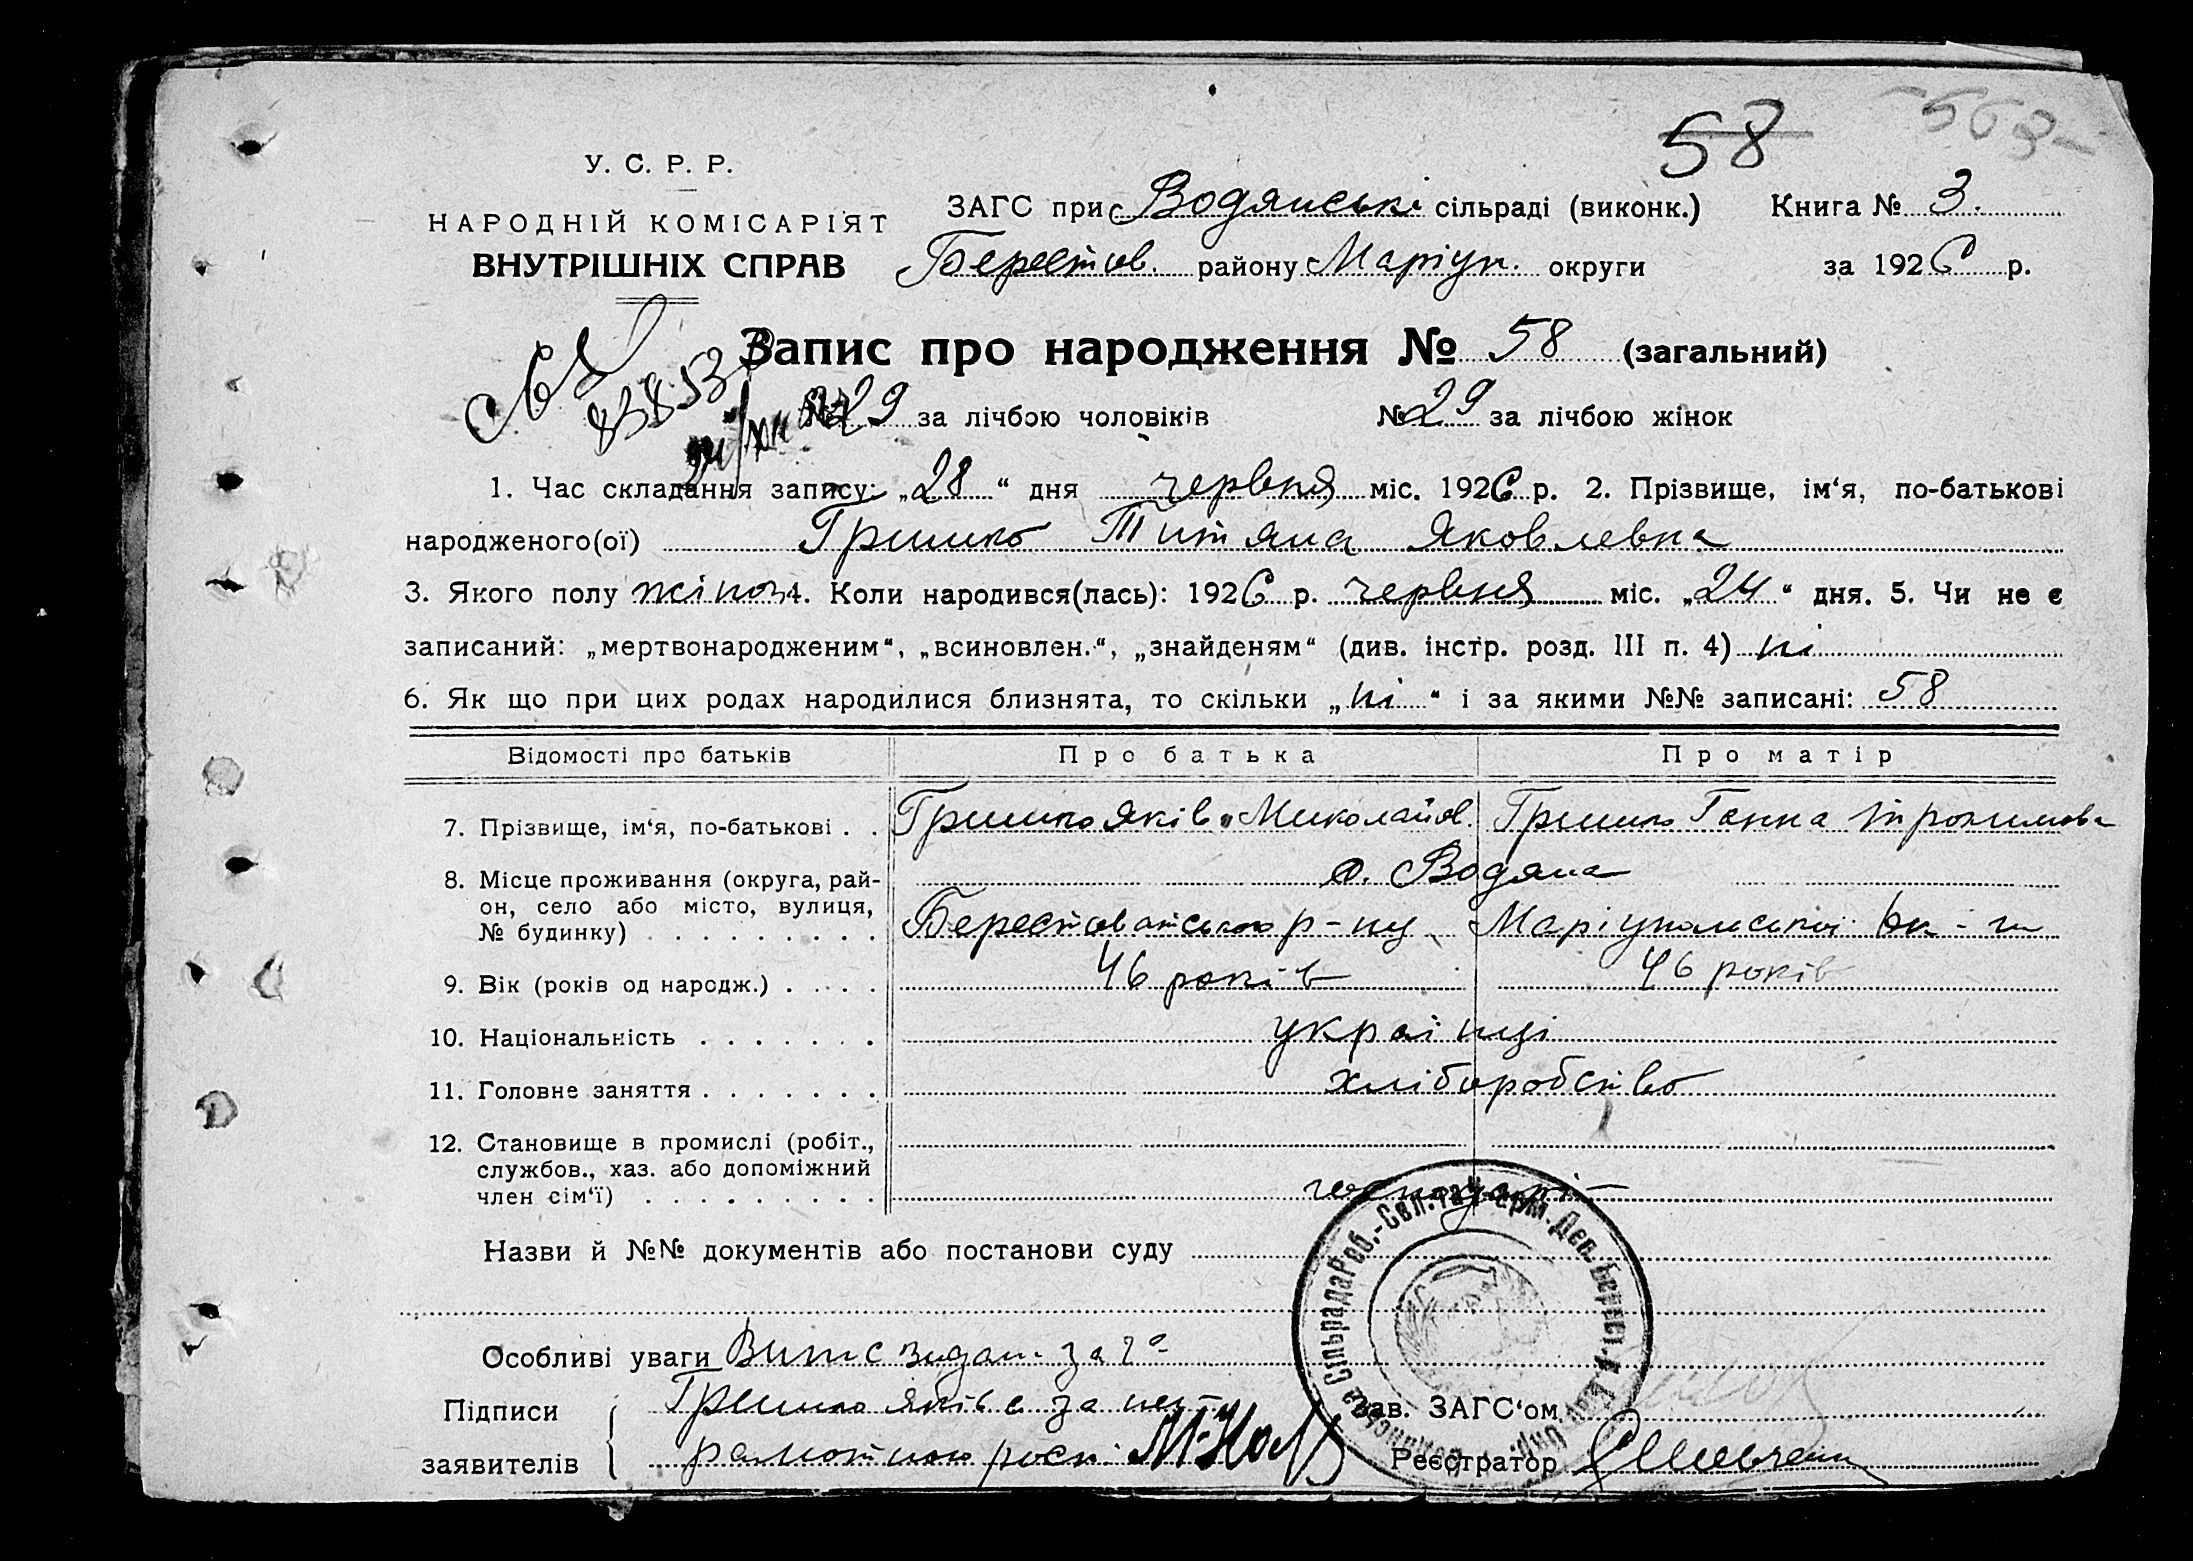 58
У. С. Р. Р.
НАРОДНІЙ КОМІСАРІЯТ
ВНУТРІШНІХ СПРАВ
ЗАГС при Водянські сільраді (виконк.) Книга № 3.
Берестов. району Маріуп. округи за 1926 р.
Запис про народження № 58 (загальний)
83853
29 за лічбою чоловіків № 29 за лічбою жінок
1. Час складання запису: „28“ дня червня міс. 1926 р. 2. Прізвище, ім‘я, по-батькові
народженого(ої) Гришко Титяна Яковлевна
3. Якого полу жіноч 4. Коли народився(лась): 1926 р. червня міс. „24“ дня. 5. Чи не є
записаний: „мертвонародженим“, „всиновлен.“, „знайденям“ (див. інстр. розд. III п. 4) ні
6. Як що при цих родах народилися близнята, то скільки „ні“ і за якими №№ записані: 58
Відомості про батьків Про батька Про матір
7. Прізвище, ім‘я, по-батькові . . Гришко Яків Миколайов. Гришко Ганна Трохимова
8. Місце проживання (округа, рай-
он, село або місто, вулиця,
№ будинку) . . . . . . . . .
с. Водяна
Берестоватського р-ну Маріупольської ок-ги
9. Вік (років од народж.) . . . . . 46 років 46 років
10. Національність . . . . . . . українці
11. Головне заняття . . . . . . . хліборобство
12. Становище в промислі (робіт.,
службов., хаз. або допоміжний
член сім‘ї) . . . . . . . . . господарі
Назви й №№ документів або постанови суду
Особливі уваги Випис видан. за №
Підписи заявителів Гришко Яків а за негр
рамотного росп.
Зав. ЗАГС‘ом
Реєстратор Шевченко